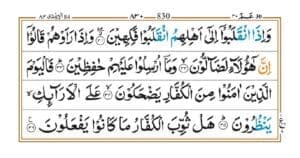 المطففين ٨٣ ٨٣٠ 830 عم ٣٠
وَاِذَا انْقَلَبُوْۤا اِلٰۤى اَهْلِهِمُ انْقَلَبُوْا فَكِهِيْنَ ۝ وَاِذَا رَاَوْهُمْ قَالُوْۤا
اِنَّ هٰۤؤُلَآءِ لَضَآلُّوْنَ ۝ وَمَاۤ اُرْسِلُوْا عَلَيْهِمْ حٰفِظِيْنَ ۝ فَالْيَوْمَ
الَّذِيْنَ اٰمَنُوْا مِنَ الْكُفَّارِ يَضْحَكُوْنَ ۝ عَلَى الْاَرَآئِكِ ۙ
يَنْظُرُوْنَ ۝ هَلْ ثُوِّبَ الْكُفَّارُ مَا كَانُوْا يَفْعَلُوْنَ ۝